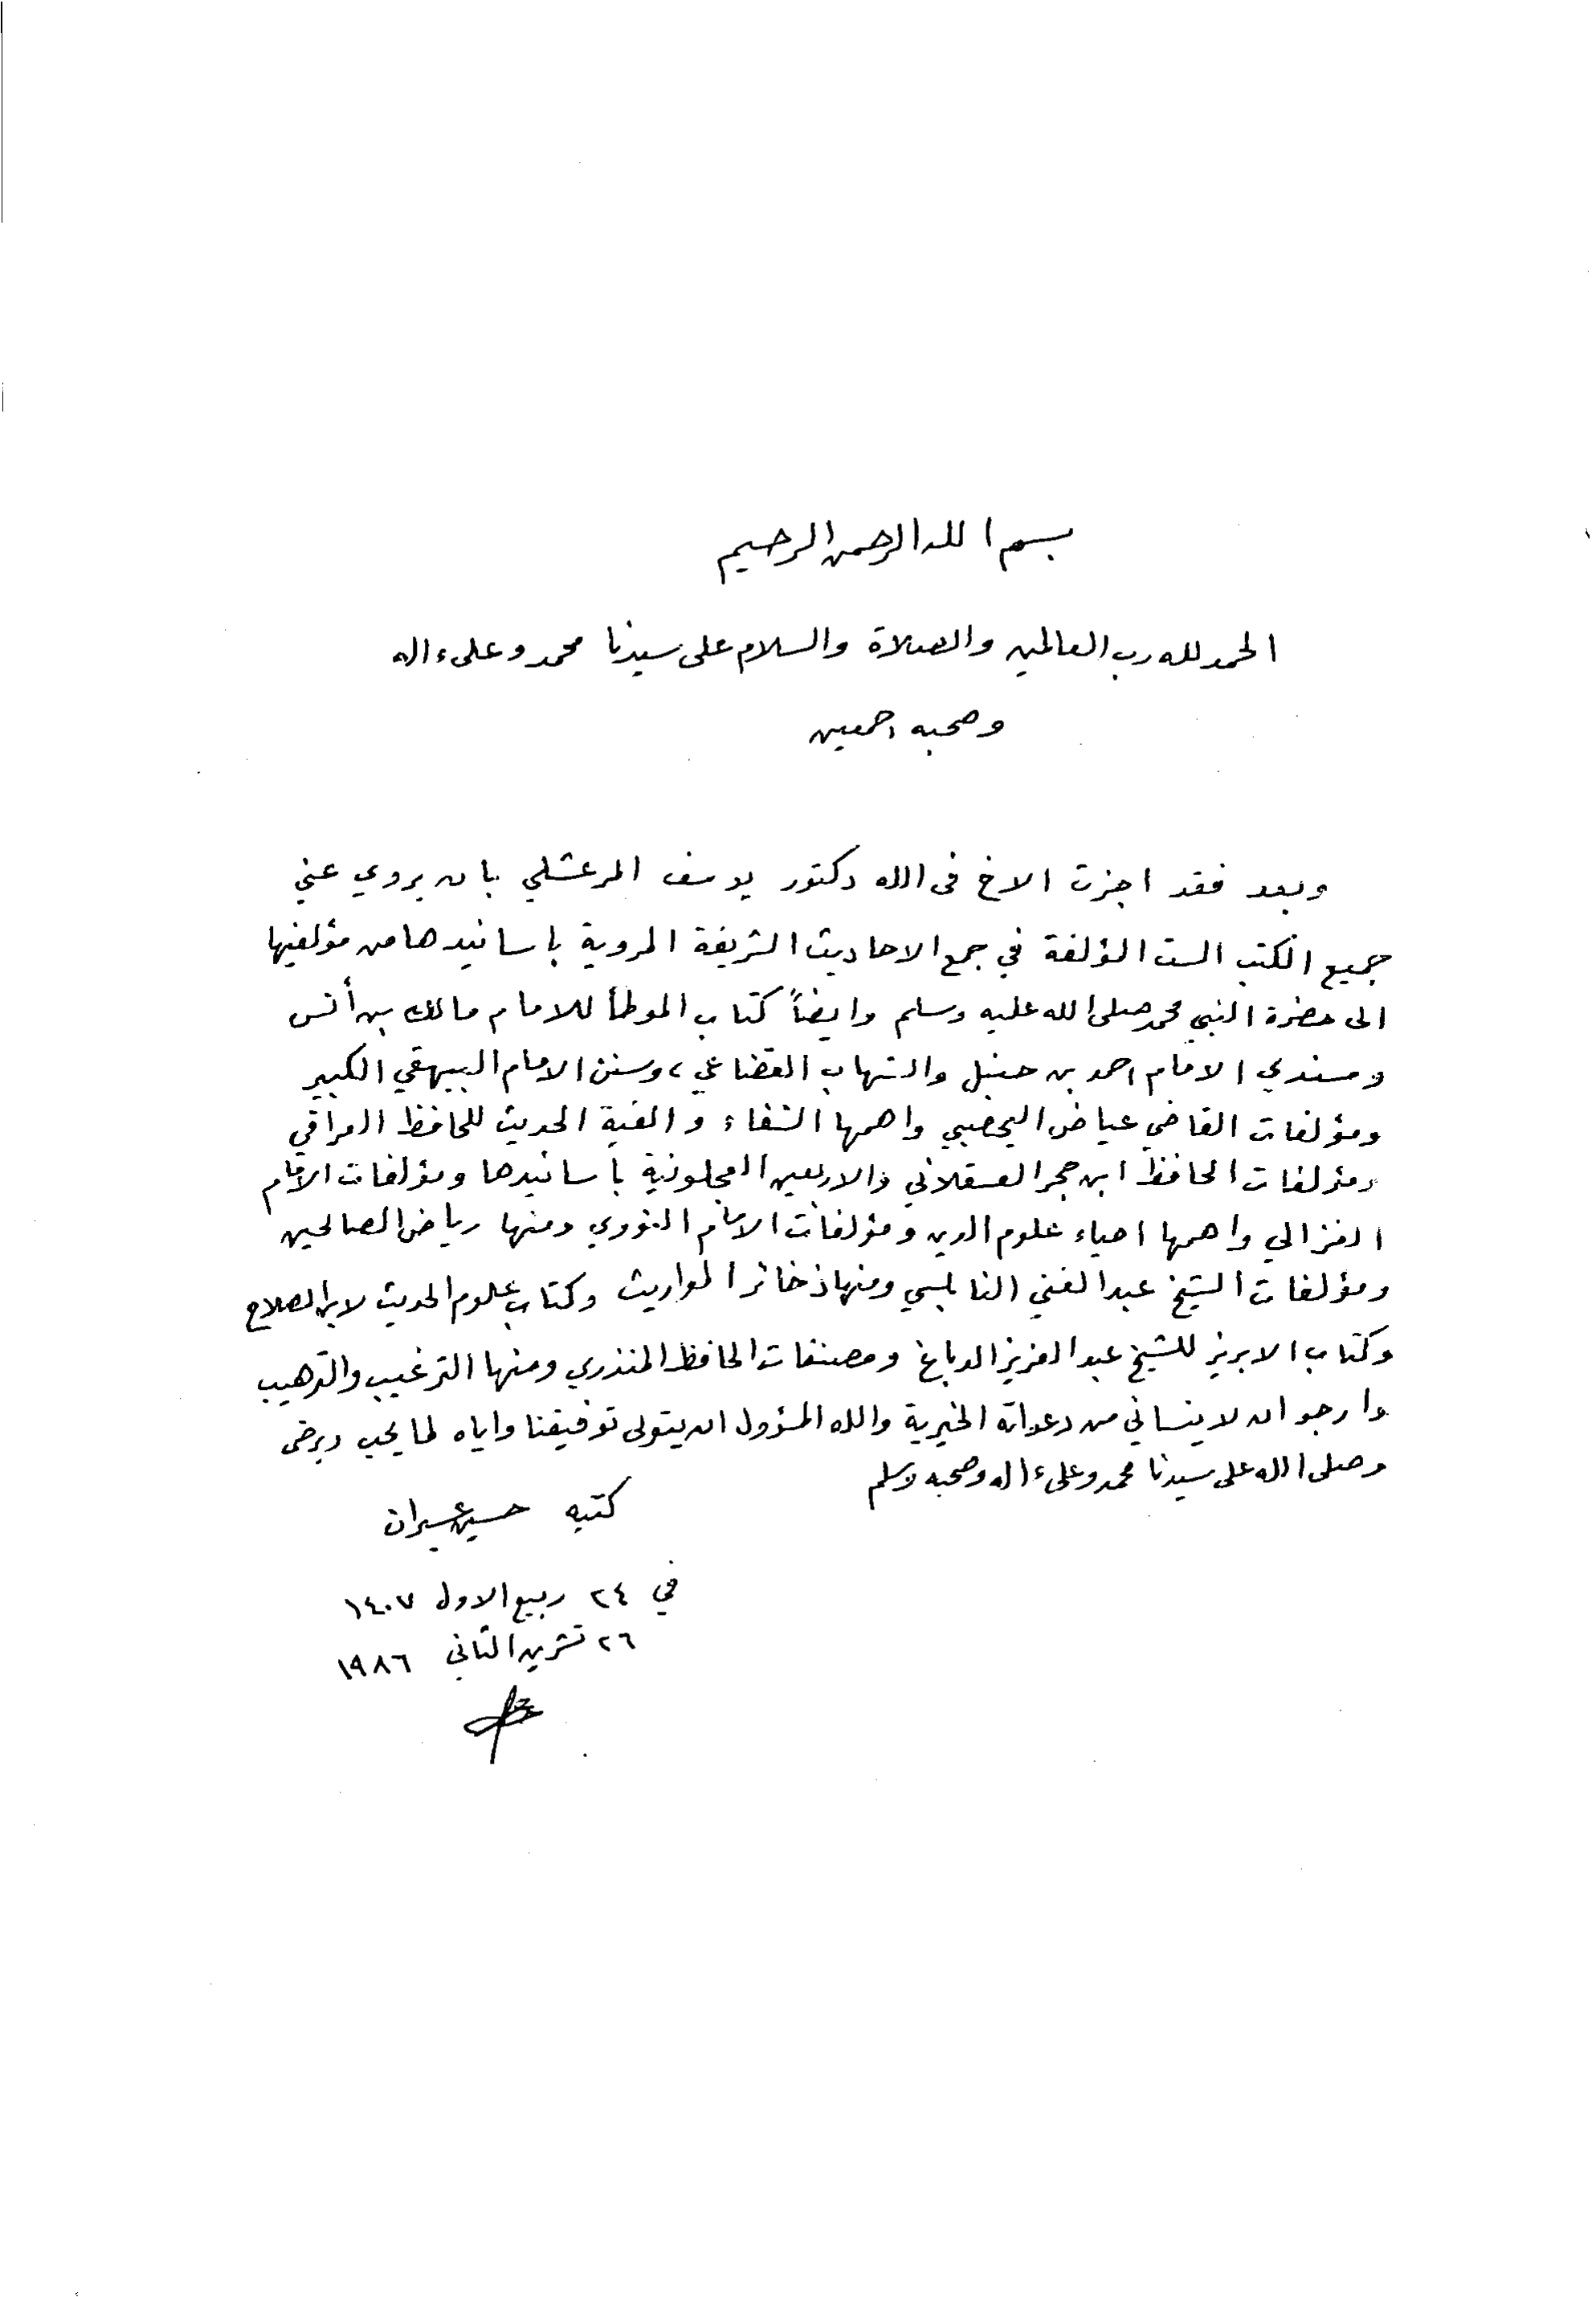 بسم الله الرحمن الرحيم
الحمد لله رب العالمين والصلاة والسلام على سيدنا محمد وعلى ءاله
وصحبه اجمعين
وبعد فقد اجزت الاخ فى الله دكتور يوسف المرعشلي بان يروي عني
جميع الكتب الست المؤلفة في جمع الاحاديث الشريفة المروية باسانيدها من مؤلفيها
الى حضرة النبي محمد صلى الله عليه وسلم وايضاً كتاب الموطأ للامام مالك بن أنس
ومسندي الامام احمد بن حنبل والشهاب القضاعي، وسنن الامام البيهقي الكبير
ومؤلفات القاضي عياض اليحصبي واهمها الشفاء والفية الحديث للحافظ العراقي
ومؤلفات الحافظ ابن حجر العسقلاني والاربعين العجلونية بأسانيدها ومؤلفات الامام
الغزالي واهمها احياء علوم الدين ومؤلفات الامام النووي ومنها رياض الصالحين
ومؤلفات الشيخ عبد الغني النابلسي ومنها ذخائر المواريث وكتاب علوم الحديث لابن الصلاح
وكتاب الابريز للشيخ عبد العزيز الدباغ ومصنفات الحافظ المنذري ومنها الترغيب والترهيب
وارجو ان لا ينساني من دعواته الخيرية والله المسؤول ان يتولى توفيقنا واياه لما يحب ويرضى
وصلى الله على سيدنا محمد وعلى ءاله وصحبه وسلم
كتبه حسين عسيران
في ٢٤ ربيع الاول ١٤٠٧
٢٦ تشرين الثاني ١٩٨٦